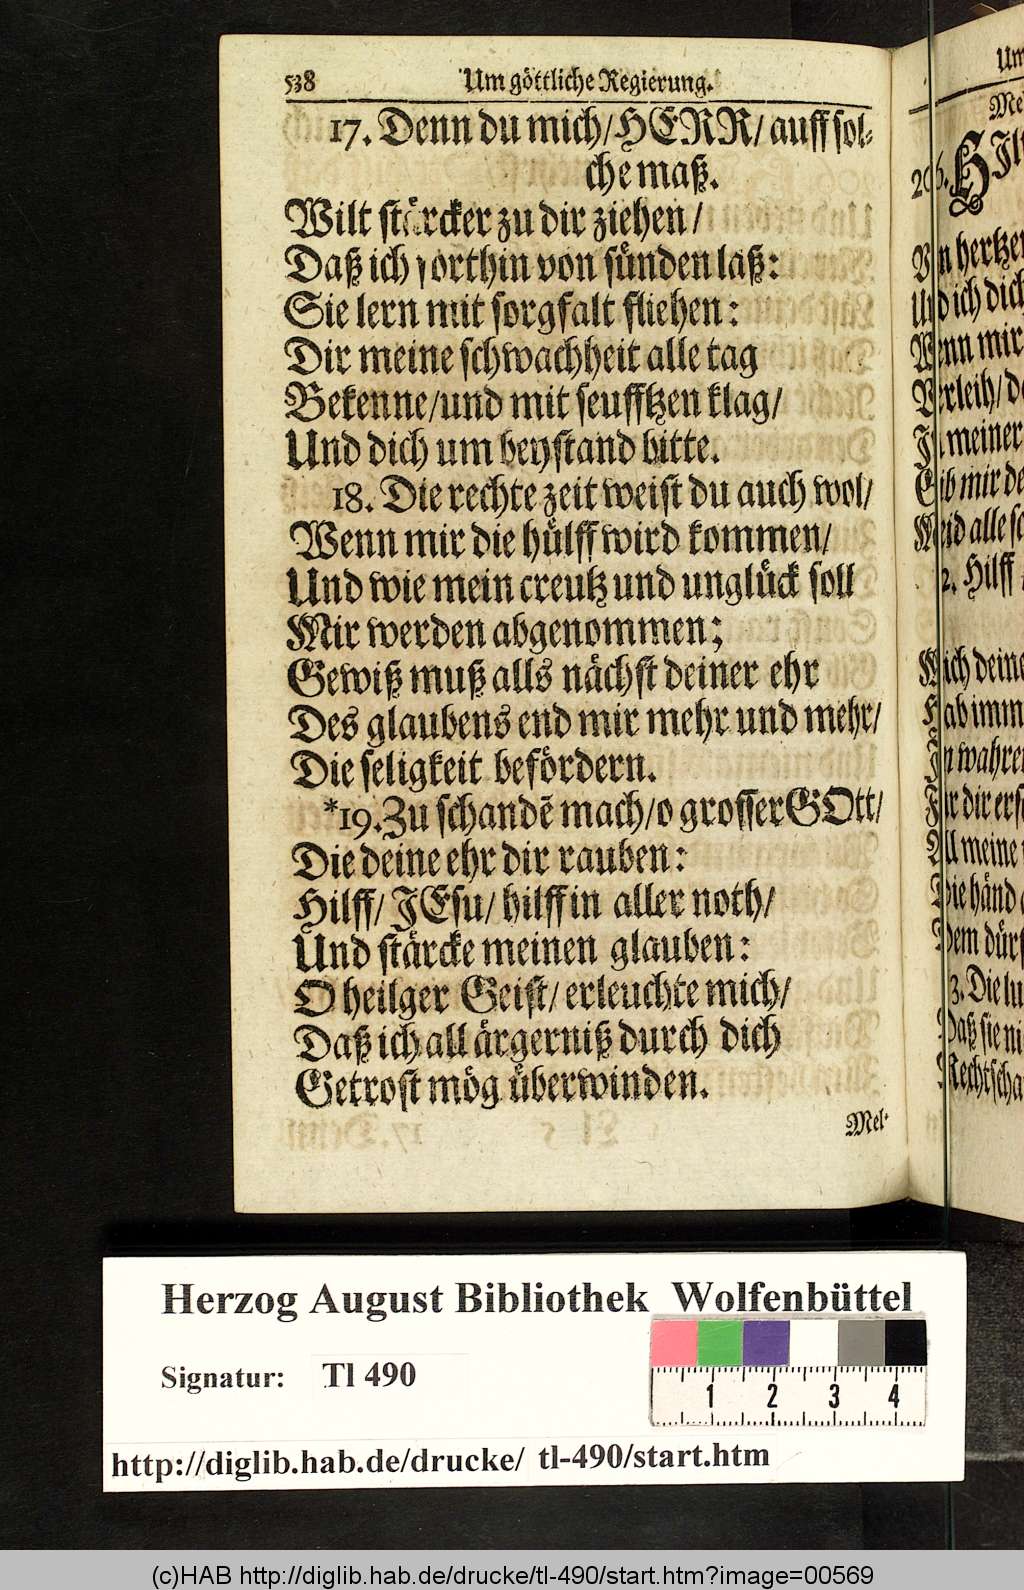 538 Um göttliche Regierung.
17. Denn du mich/HERR/ auff sol-
che maß.
Wilt stärcker zu dir ziehen/
Daß ich forthin von sünden laß:
Sie lern mit sorgfalt fliehen:
Dir meine schwachheit alle tag
Bekenne/und mit seufftzen klag/
Und dich um beystand bitte.
18. Die rechte zeit weist du auch wol/
Wenn mir die hülff wird kommen/
Und wie mein creutz und unglück soll
Mir werden abgenommen;
Gewiß muß alls nächst deiner ehr
Des glaubens end mir mehr und mehr/
Die seligkeit befördern.
*19. Zu schandē mach/o grosser GOtt/
Die deine ehr dir rauben:
Hilff/ JEsu/ hilff in aller noth/
Und stärcke meinen glauben:
O heilger Geist/ erleuchte mich/
Daß ich all ärgerniß durch dich
Getrost mög überwinden.
Mel-
Um
Mel
206. HIl
Von hertzen
Und ich dich
Wenn mir
Verleih/ d
In meiner
Gib mir de
Meid alle s
2. Hilff
Mich deine
Hab imm
In wahre
Für dir ers
All meine
Die händ
Dem dürf
3. Die lu
Daß sie ni
Rechtscha
Herzog August Bibliothek Wolfenbüttel
Signatur: Tl 490
1 2 3 4
http://diglib.hab.de/drucke/ tl-490/start.htm
(c)HAB http://diglib.hab.de/drucke/tl-490/start.htm?image=00569